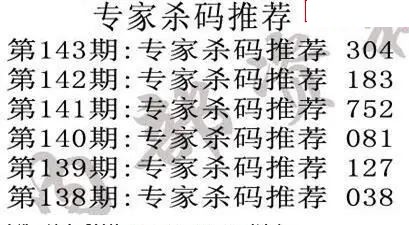 专家杀码推荐
第143期:专家杀码推荐 304
第142期:专家杀码推荐 183
第141期:专家杀码推荐 752
第140期:专家杀码推荐 081
第139期:专家杀码推荐 127
第138期:专家杀码推荐 038